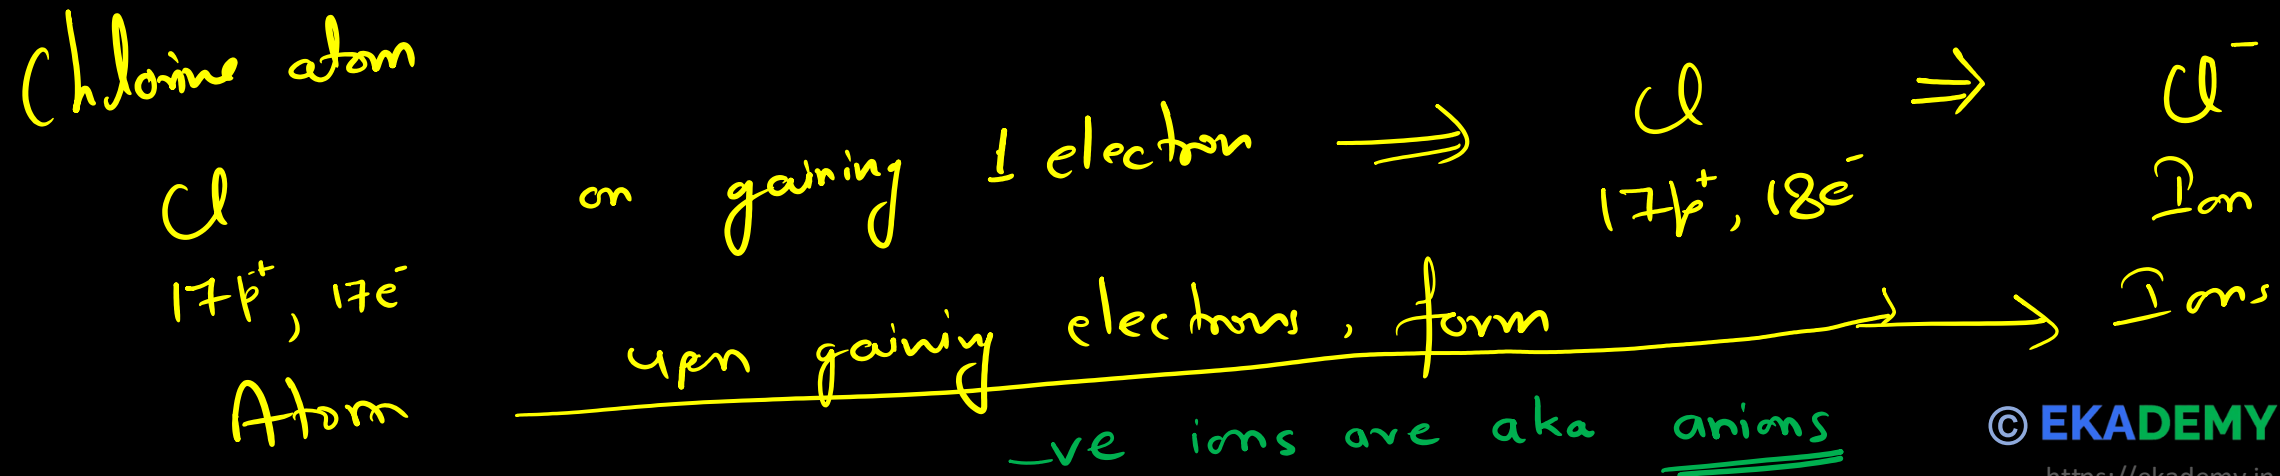 Chlorine atom
Cl on gaining 1 electron ⟹ Cl ⇒ Cl⁻
17p⁺, 17e⁻ 17p⁺, 18e⁻ Ion
Atom upon gaining electrons, form → Ions
-ve ions are aka anions
© EKADEMY
https://ekademy.in